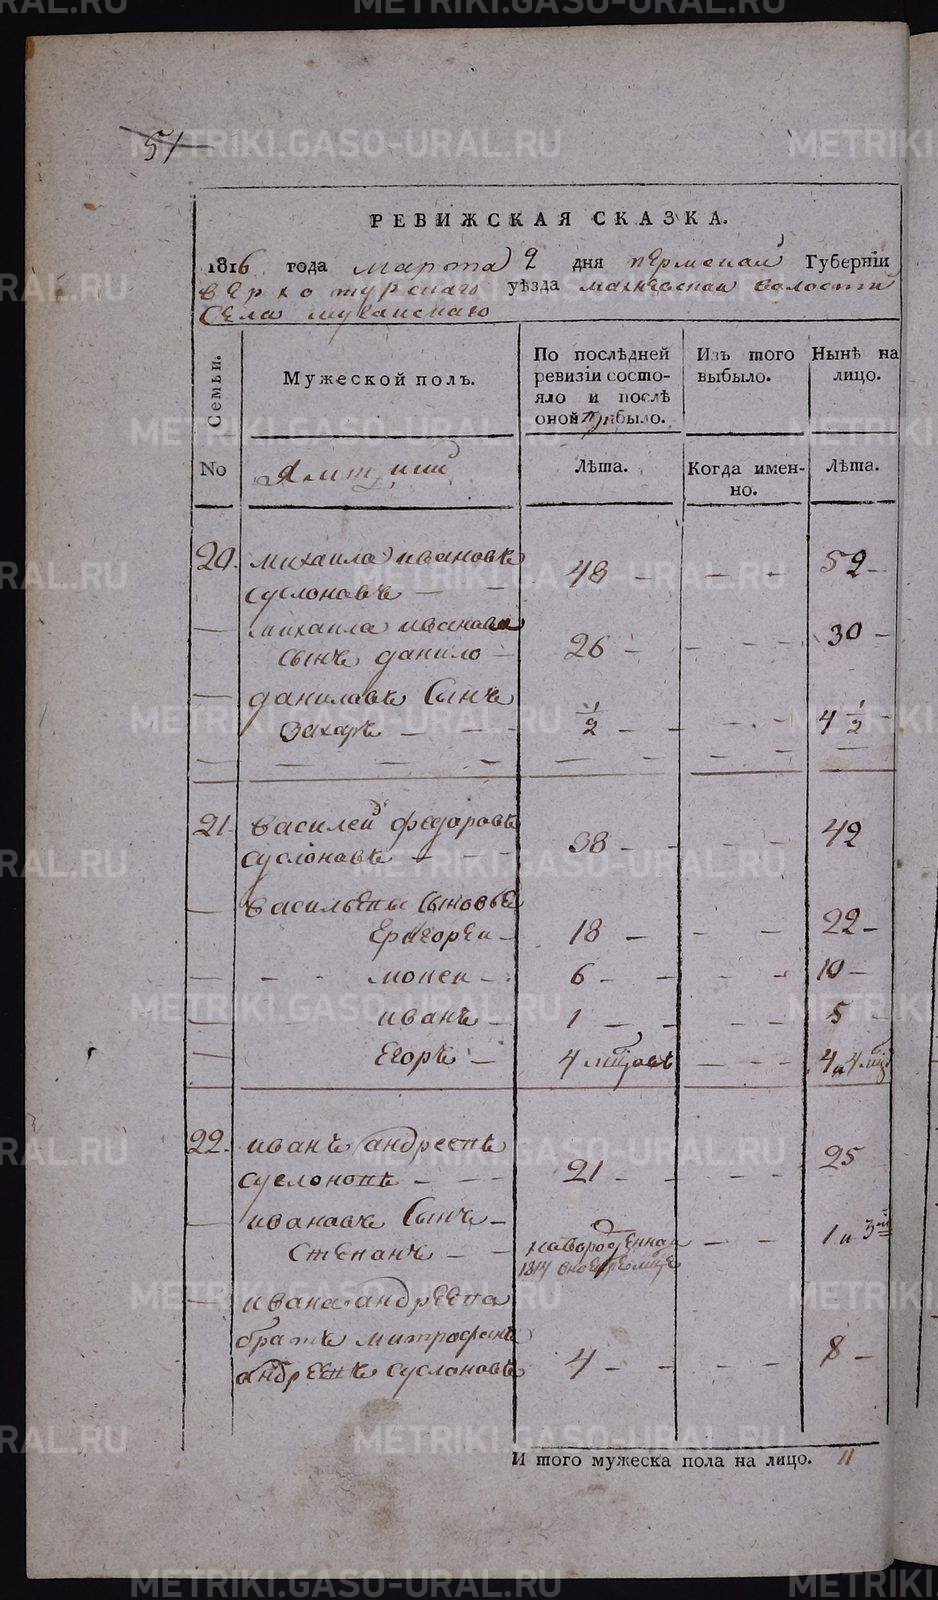 51
РЕВИЖСКАЯ СКАЗКА.
1816 года марта 2 дня пермской Губернїи
верхотурскаго уѣзда махневской волости
Села мугайскаго
Семьи.
Мужеской полъ.
По послѣдней ревизіи состояло и послѣ оной прибыло.
Изъ того выбыло.
Нынѣ на лицо.
No
Лѣта.
Когда именно.
Лѣта.
20. михаила ивановъ 48 52
суслоновъ
михаила иванова
сынъ данило 26 30
даниловъ сынъ
Захаръ 1/2 4 1/2
21. василей федоровъ 38 42
суслоновъ
васильевы сыновье
Григорей 18 22
мосей 6 10
иванъ 1 5
Егоръ 4 мцовъ 4 и 4 мца
22. иванъ андреевъ
суслоновъ 21 25
ивановъ сынъ
степанъ новорожденной 1 и 3
1814
ивана андреева
братъ митрофанъ
андреевъ суслоновъ 4 8
И того мужеска пола на лицо. 11
METRIKI.GASO-URAL.RU